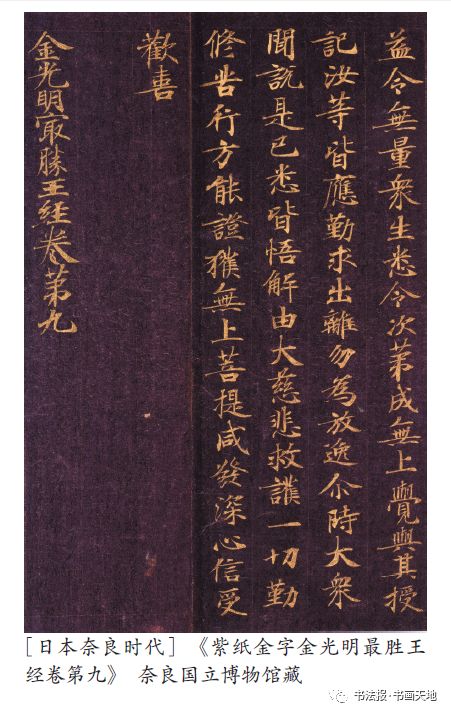 益令無量衆生悉令次第成無上覺與其授
記汝等皆應勤求出離勿為放逸尒時大衆
聞說是已悉皆悟解由大慈悲救護一切勤
修苦行方能證獲無上菩提咸發深心信受
歡喜
金光明寂勝王経卷第九
[日本奈良时代] 《紫纸金字金光明最胜王
经卷第九》 奈良国立博物馆藏
书法报·书画天地